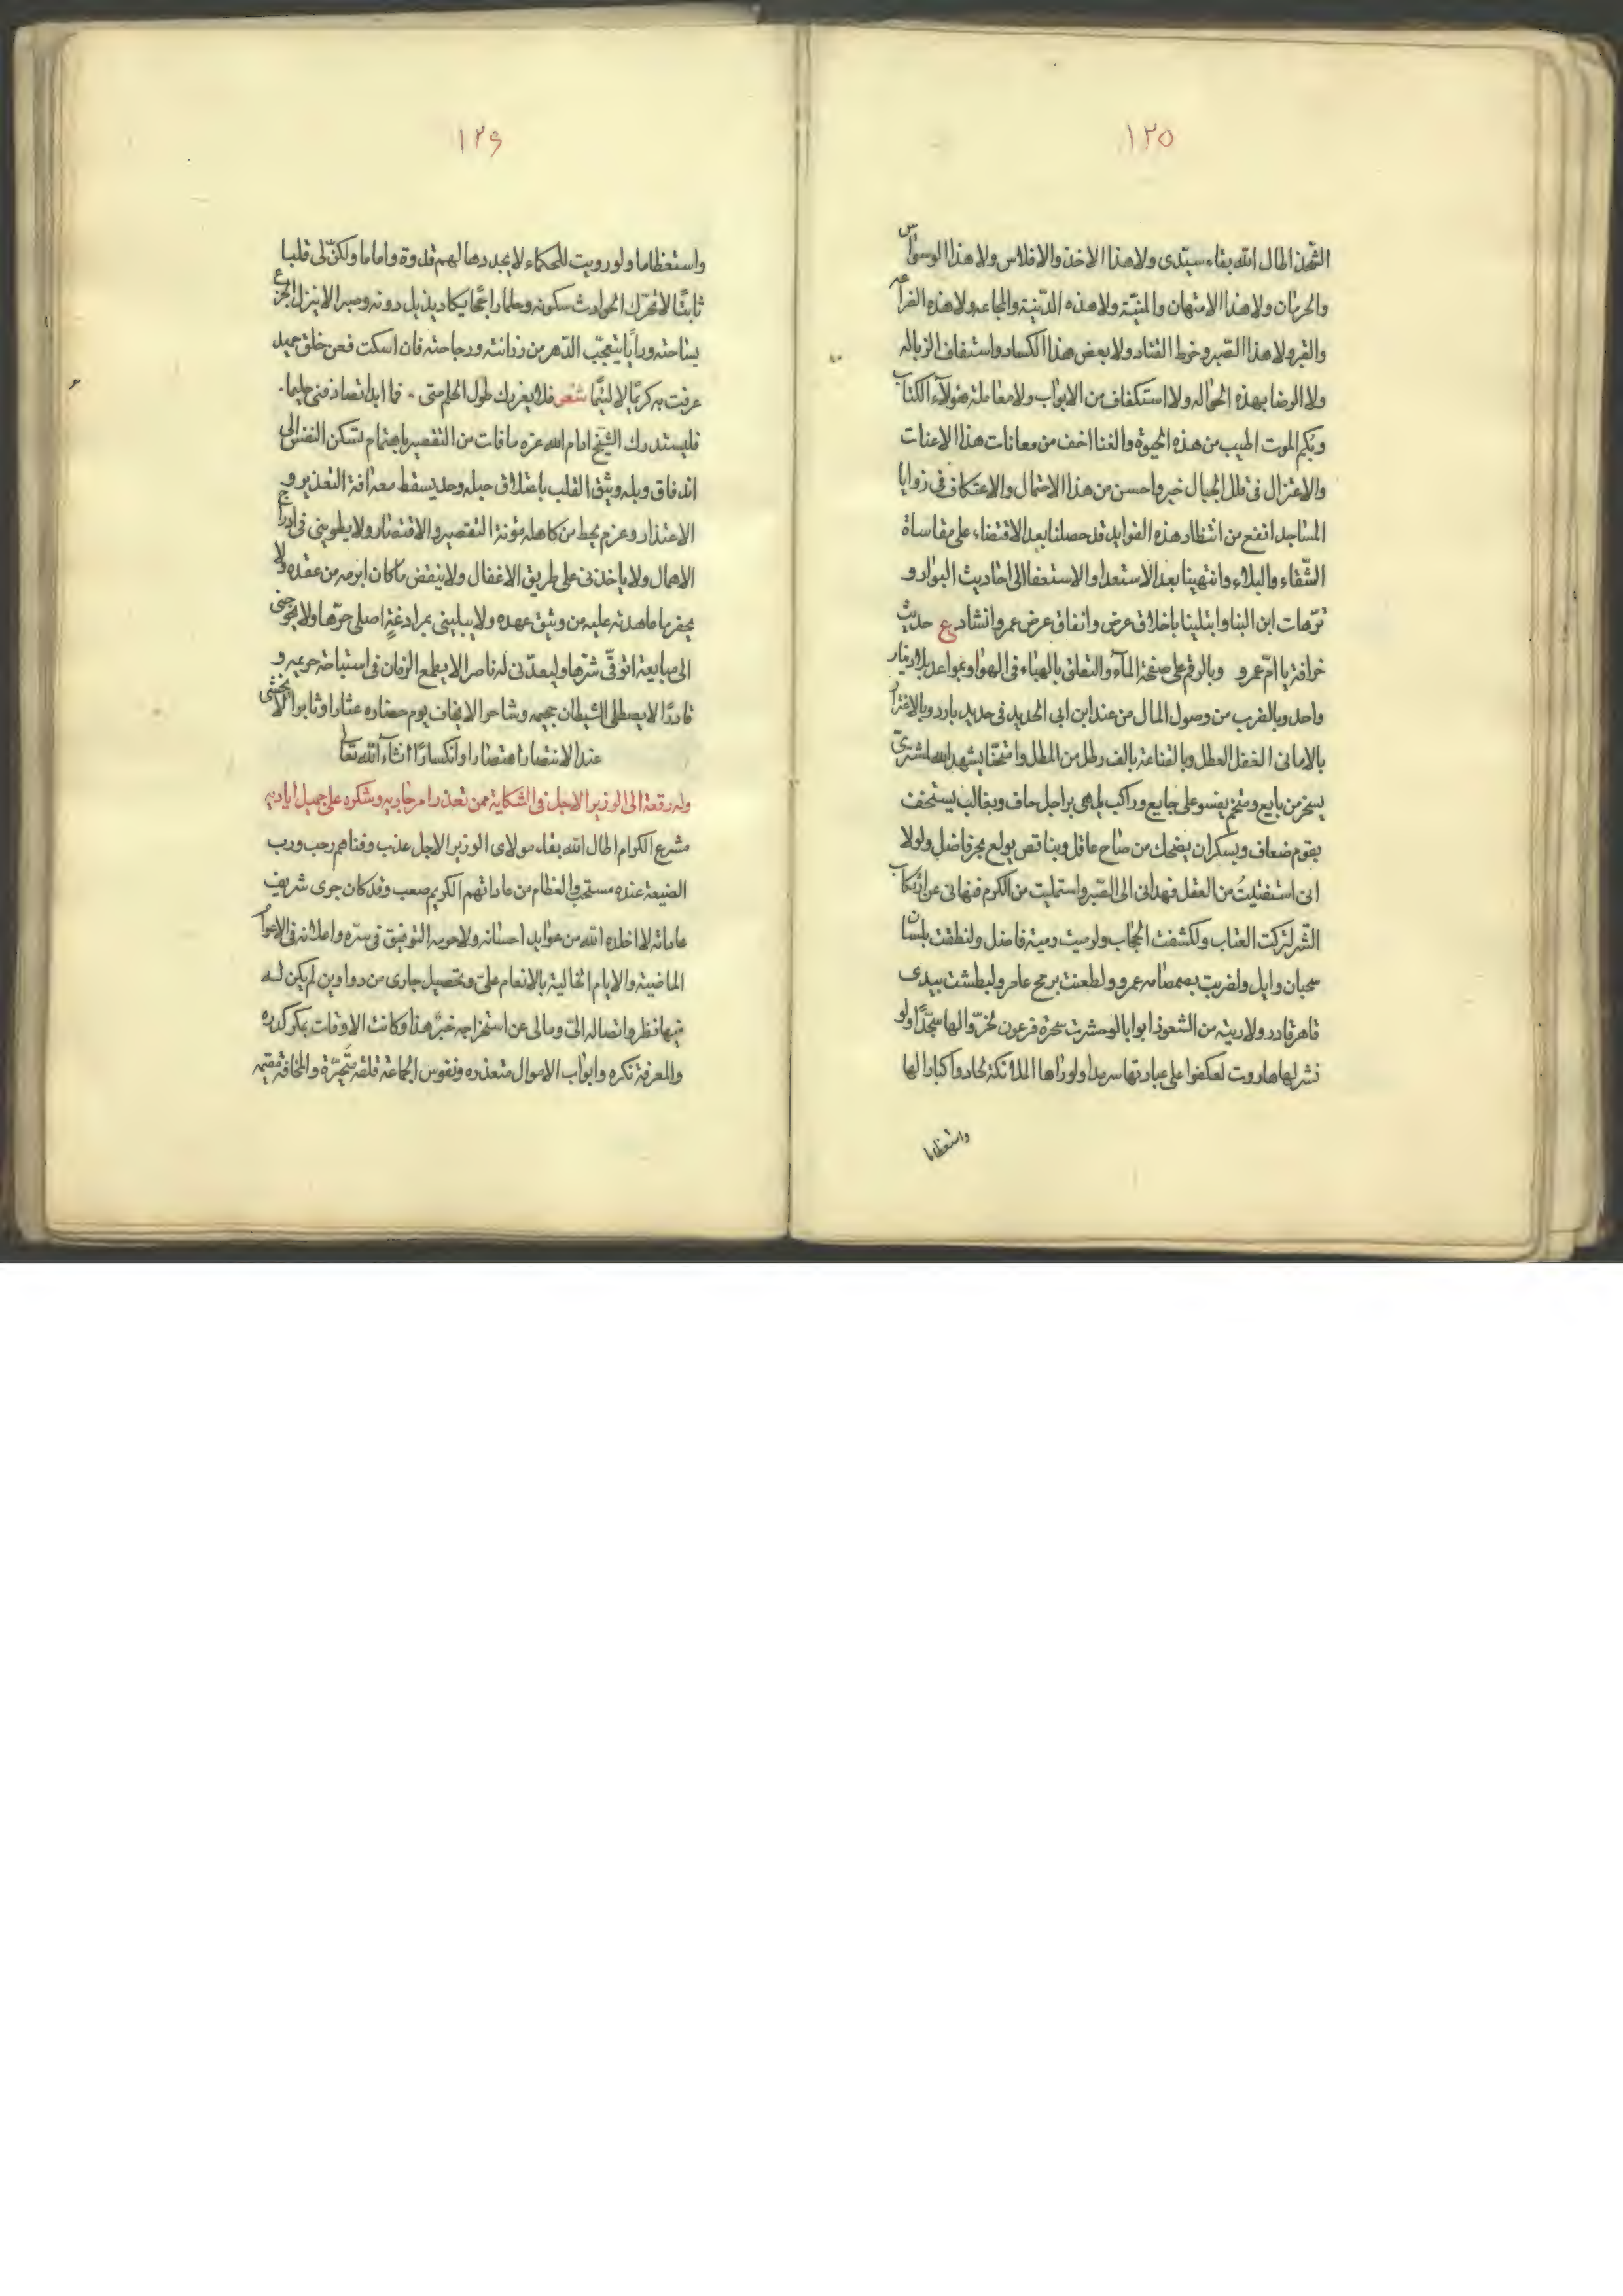 ١٢٥
الشحذ اطال الله بقاء سيدى ولا هذا الاخذ والافلاس ولا هذا الوسواس
والحرمان ولا هذا الامتهان والمنيّة ولا هذه الدنية والمجاعه ولا هذه الضراعه
والقبر ولا هذا الصّبر وخرط القتاد ولا بعض هذا الكساد واستفاف الزباله
ولا الرضا بهذه الحواله ولا استكفاف من الابواب ولا معاملة هؤلآء الكتاب
وبكم الموت اطيب من هذه الحيوة والفنا اخف من معانات هذا الاعنات
والاعتزال فى قلل الجبال خير واحسن من هذا الاحتمال والاعتكاف فى زوايا
المساجد انفع من انتظار هذه الفوايد قد حصلنا بعد الاقتضاء على مقاساة
الشّقاء والبلاء وانتهينا بعد الاستعدا والاستعفا الى احاديث البوار و
ترّهات ابن البنا وابتلينا باخلاق عرض وانفاق عرض عمر وانشاد ع حديث
خرافة يا امّ عمرو وبالرقم على صفحة المآء والتعلق بالهبآء فى الهوا وبمواعد بلا دينار
واحد وبالقرب من وصول المال من عند ابن ابى الحديد فى حديد بارد وبالاغترار
بالامانى الغفل العطل وبالقناعة بالف رطل من المطل وامتحنّا يشهد الله بمشترىّ
يسخر من بايع ومتخم يفسو على جايع وراكب يلهى براجل حاف وبغالب يستخف
بقوم ضعاف وبسكران يضحك من صاح عاقل وبناقص يولع بحر فاضل ولولا
انى استفتيتُ من العقل فهدانى الى الصّبر واستمليت من الكرم فنهانى عن ارتكاب
الشّر لتركت العتاب ولكشفت الحجاب ولرميت رمية فاضل ولنطقت بلسان
سحبان وايل ولضربت بصمصامه عمرو ولطعنت برمح عامر ولبطشت بيدى
قاهر قادر ولاريته من الشعوذ ابوابا لو حشرت سحرة فرعون لخرّوا لها سجّدًا ولو
نشر لها هاروت لعكفوا على عبادتها سرمدا ولو راها الملائكة لحادوا اكبارا لها
واستعظاما
١٢٦
واستعظاما ولو رويت للحكماء لا يجد رهالهم قدوة واماما ولكنّ لى قلبا
ثابتًا لا تحرّك الحوادث سكونه وحلما راجحًا يكاد يذبل دونه وصبرا لا ينزل الجزع
بساحته ورأيًا يتعجّب الدّهر من رزانته ورجاحته فان اسكت فعن خلق حميد
عرفت به كريمًا لا لئيمًا شعر فلا يغررك طول الحلم منى ۰ فما ابدا تصادفنى حليما ۰
فليستدرك الشيخ ادام الله عزه ما فات من التقصير باهتمام تسكن النفس الى
اندفاق وبله ويثق القلب باعتلاق حبله وحد يسقط معه افة التعذير و
الاعتذار وعزم يحط من كاهله مؤنة التقصير والاقتصار ولا يطوينى فى ادراج
الاهمال ولا ياخذنى على طريق الاغفال ولا ينقض ما كان ابرمه من عقده ولا
يخفر ما عاهدته عليه من وثيق عهده ولا يبلينى بمرادغةٍ اصلى حرّها ولا يحوجنى
الى صايعة اتوقّى شرّها وليعدّنى له ناصرا لا يطمع الزمان فى استباحة حريمه و
قادرًا لا يصطلى الشيطان بجحيمه وشاحرا لا يخاف يوم حضاره عثارا وثابرا لا يخشى
عند الانتصار اهتضارا وانكسارًا انشآء الله تعالى
وله رقعة الى الوزير الاجل فى الشكاية ممن تعذر امر جاريه وشكره على جميل اياديه
مشرع الكرام اطال الله بقاء مولاى الوزير الاجل عذب وفناهم رحب ورب
الضيعة عنده مستحب والفظام من عاداتهم الكريم صعب وقد كان جرى شريف
عاداته لا اخلاه الله من عوايد احسانه ولا حرمه التوفيق فى سرّه واعلانه فى الاعوام
الماضية والايام الخالية بالانعام علىّ وتحصيل جارى من دواوين لم يكن لـه
فيها نظر واتصاله الىّ ومالى عن استخراجه خبر هذا وكانت الاوقات بكر كدره
والمعرفة نكره وابواب الاموال متعذره ونفوس الجماعة قلقة متحيّرة والمخافة مقيمه